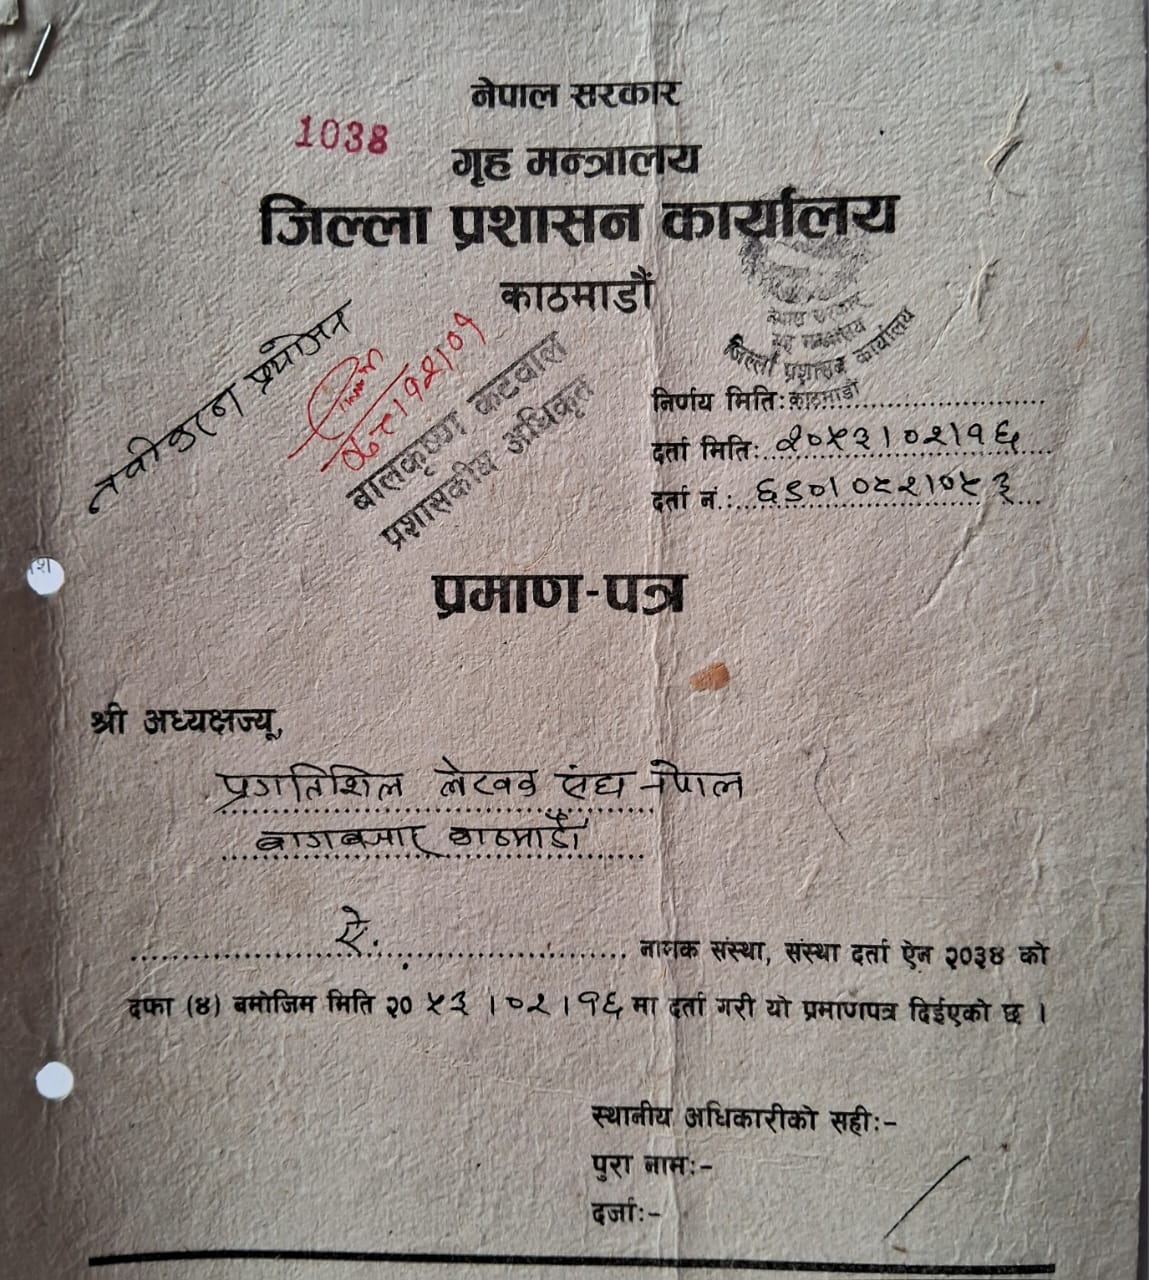 नेपाल सरकार
1038
गृह मन्त्रालय
जिल्ला प्रशासन कार्यालय
काठमाडौं
नवीकरण प्रयोजन
बालकृष्ण कटवाल
प्रशासकीय अधिकृत
नेपाल सरकार
गृह मन्त्रालय
जिल्ला प्रशासन कार्यालय
काठमाडौं
निर्णय मिति:
दर्ता मिति: २०५३।०२।१६
दर्ता नं.: ६९०।०५२।०५३
प्रमाण-पत्र
श्री अध्यक्षज्यू,
प्रगतिशिल लेखक संघ नेपाल
बागबजार काठमाडौं
ऐ. नामक संस्था, संस्था दर्ता ऐन २०३४ को
दफा (४) बमोजिम मिति २०५३।०२।१६ मा दर्ता गरी यो प्रमाणपत्र दिईएको छ ।
स्थानीय अधिकारीको सही:-
पुरा नाम:-
दर्जा:-